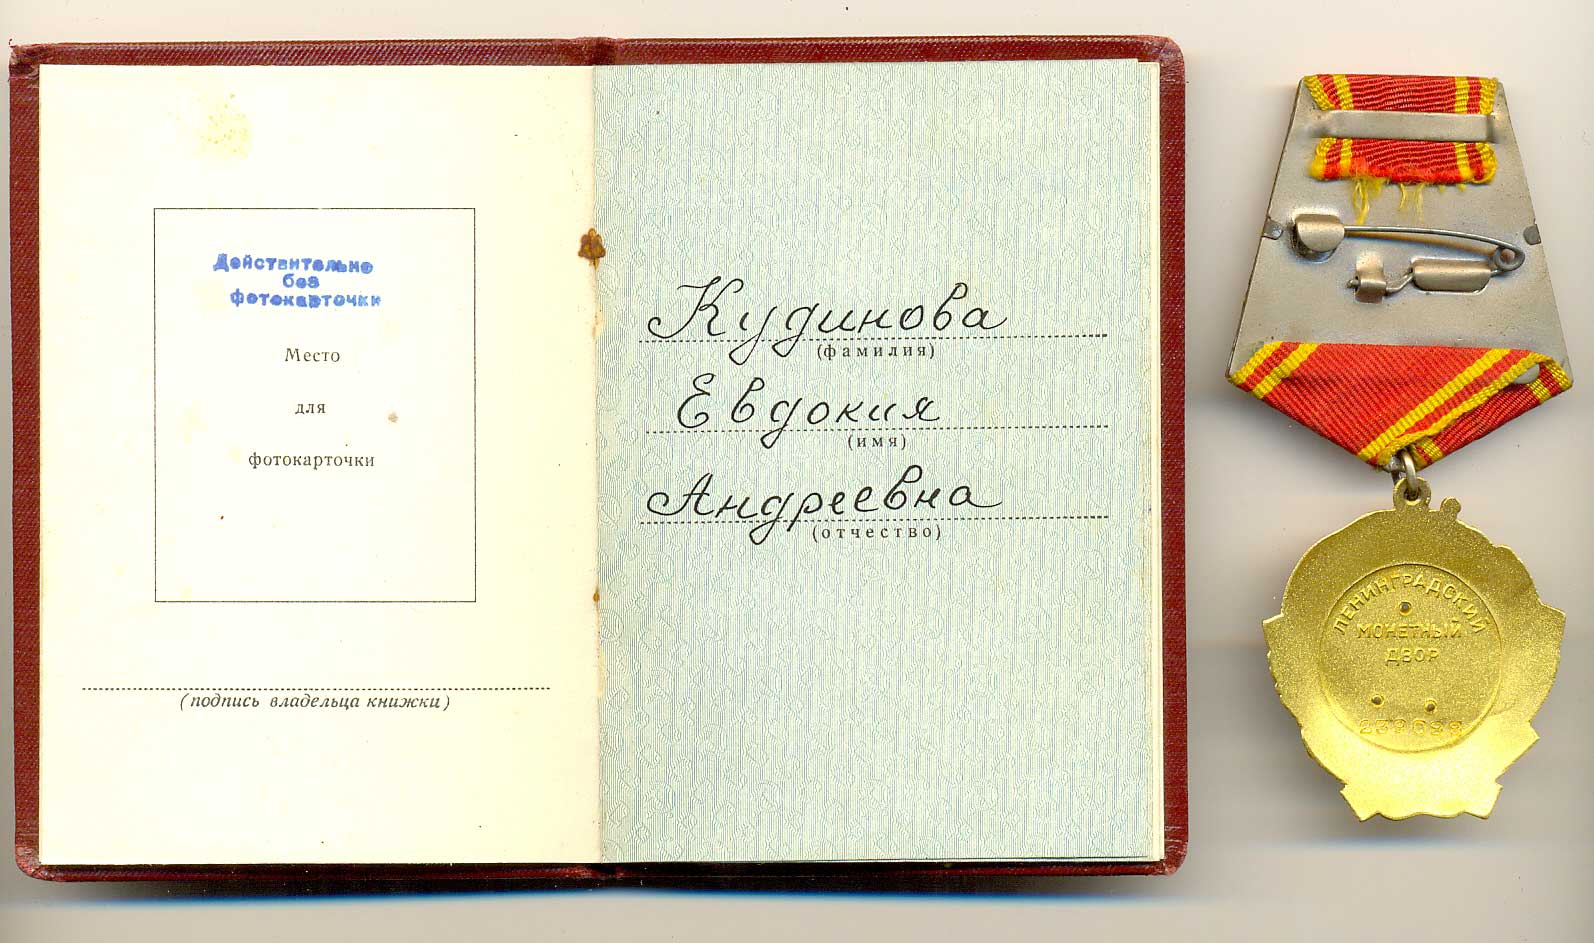 Действительно
без
фотокарточки
Место
для
фотокарточки
(подпись владельца книжки)
Кудинова
(фамилия)
Евдокия
(имя)
Андреевна
(отчество)
ЛЕНИНГРАДСКИЙ
МОНЕТНЫЙ
ДВОР